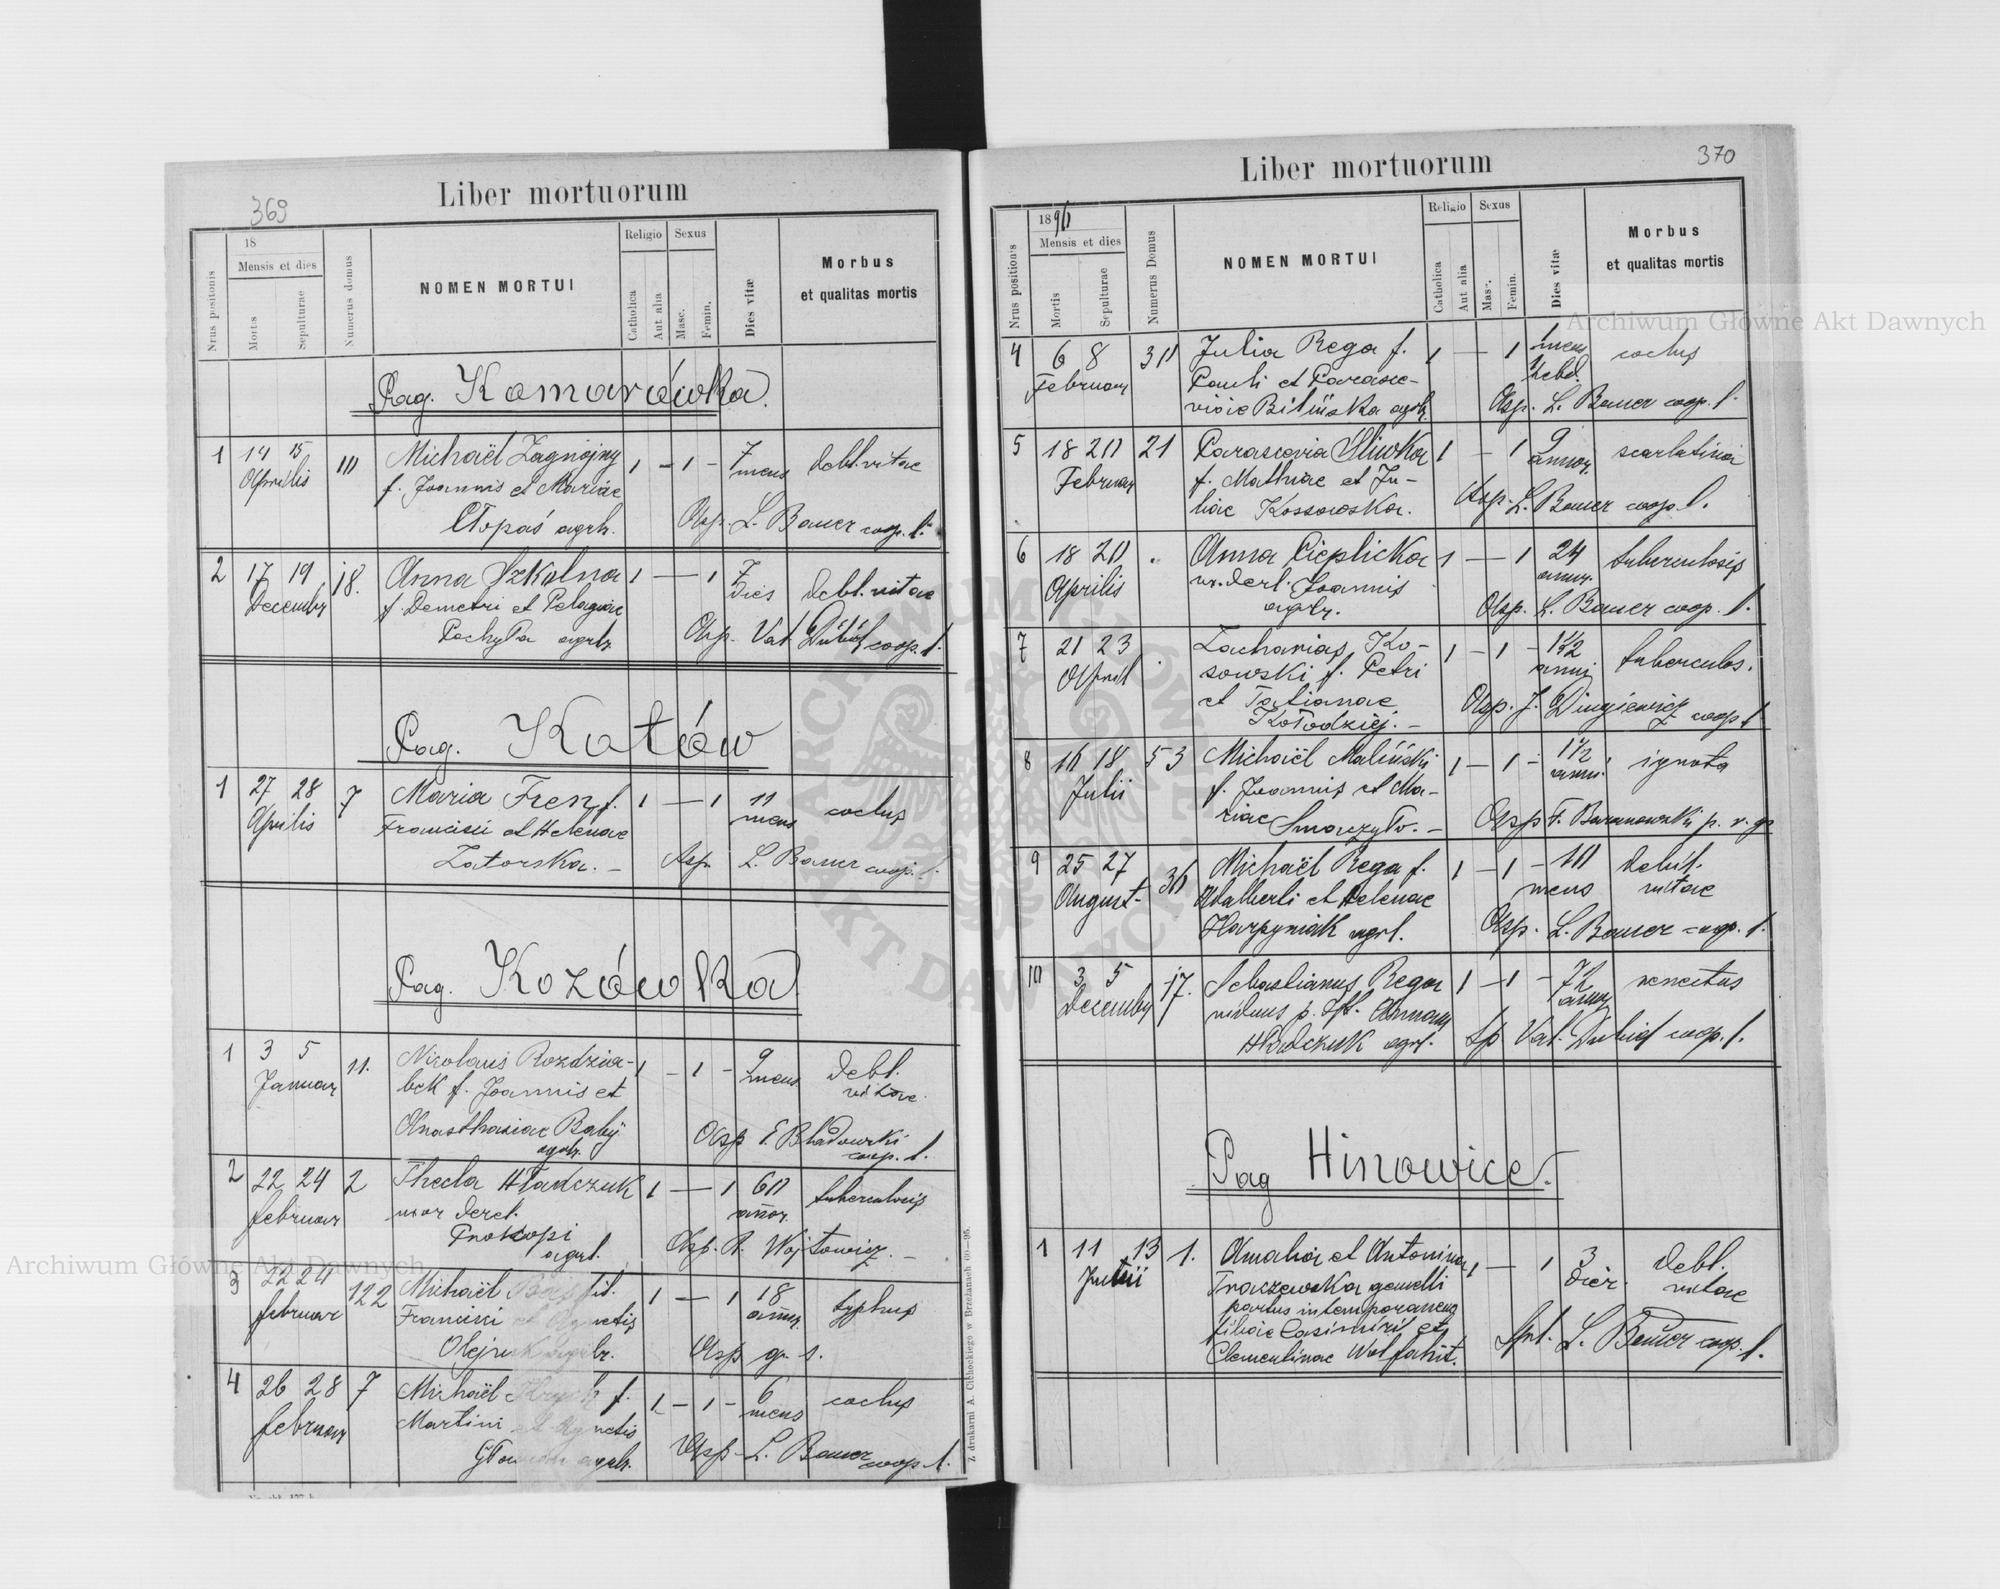 369
Liber mortuorum
Nrus positionis
18
Mensis et dies
Mortis
Sepulturae
Numerus domus
NOMEN MORTUI
Religio
Catholica
Aut alia
Sexus
Masc.
Femin.
Dies vitæ
Morbus
et qualitas mortis
Pag. Komarówka.
1 14 15 10 Michaël Zagnojny 1 - 1 - 7 debl. vitae
Aprilis f. Joannis et Mariae mens
Chłopaś agrlr. Asp. L. Bauer coop. l.
2 17 19 18. Anna Szkolna 1 — 1 7 debl. vitae
Decembr f. Demetri et Pelagiae dies
Pachyła agrlr. Asp. Val. Dubiel coop. l.
Pag. Kotów
1 27 28 7 Maria Frenz f. 1 — 1 11 coctus
Aprilis Francisci et Helenae mens
Zatorska. — Asp. L. Bauer coop. l.
Pag. Kozówka
1 3 5 11. Nicolaus Rozdzia- 1 - 1 - 9 debl.
Januar bek f. Joannis et mens vitae.
Anasthasiae Baby
agrlr. Asp. coop. l.
2 22 24 2 Thecla Hładczuk 1 — 1 60 tuberculosis
februar uxor derel. annor.
Prokopi
agrl. Asp. A. Wojtowicz. —
3 22 24 122 Michaël fil. 1 — 1 18 typhus
februar Francisci et Agnetis annor.
agrlr. Asp. gr. s.
4 26 28 7 Michaël f. 1 - 1 - 6 coctus
februar Martini et Agnetis mens
agrlr. Asp. L. Bauer coop. l.
Z drukarni A. Cichockiego w Brzeżanach
370
Liber mortuorum
Nrus positionis
1896
Mensis et dies
Mortis
Sepulturae
Numerus Domus
NOMEN MORTUI
Religio
Catholica
Aut alia
Sexus
Masc.
Femin.
Dies vitæ
Morbus
et qualitas mortis
4 6 8 30 Julia Rega f. 1 — 1 coctus
Februar Pauli et Parasce- hebd.
viae Bilińska agrlr. Asp. L. Bauer coop. l.
5 18 20 21 Parascevia Śliwka 1 — 1 9 scarlatina
Februar f. Mathiae et Ju- annor.
liae Kossowska. Asp. L. Bauer coop. l.
6 18 20 . Anna Cieplicka 1 — 1 24 tuberculosis
Aprilis ux. derl. Joannis annor.
agrlr. Asp. L. Bauer coop. l.
7 21 23 . Zacharias Ko- 1 - 1 - 1 1/2 tuberculos.
April sowski f. Petri anni
et Tatianae Asp. J. coop l
Kołodziej. —
8 16 18 53 Michaël Maliński 1 - 1 - 1 1/2 ignota
Julii f. Joannis et Ma- anni
riae Smoczyło. — Asp. F. Baranowski p. r. gr
9 25 27 36 Michaël Rega f. 1 - 1 - 10 debil.
August- Adalberti et Helenae mens vitae
Harpyniak agrl. Asp. L. Bauer coop. l.
10 3 5 17. Sebastianus Rega 1 - 1 - 72 senectus
Decembr viduus p. Annam annor
Hładczuk agrl. Sp Val. Dubiel coop. l.
Pag Hinowice.
1 11 13 1. Amalia et Antonina 1 — 1 3 debl.
Julii Traczewska gemelli dier. vitae
partus intemporaneus
filiae Casimiri et
Clementinae Wolfahrt. Spl. L. Bauer coop. l.
Archiwum Główne Akt Dawnych
Archiwum Główne Akt Dawnych
ARCHIWUM GŁÓWNE AKT DAWNYCH